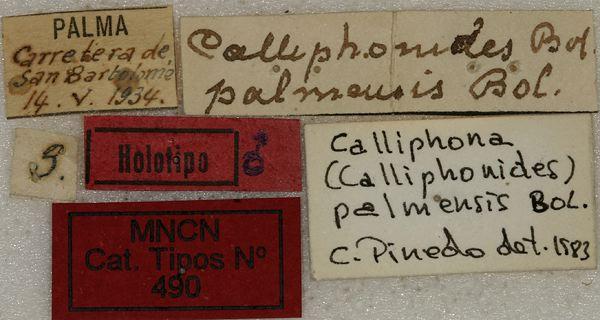 PALMA
Carretera de
San Bartolomé
14. V. 1934.
Calliphonides Bol.
palmensis Bol.
9.
Holotipo ♂
Calliphona
(Calliphonides)
palmensis BOL.
C. Pinedo det. 1983
MNCN
Cat. Tipos Nº
490